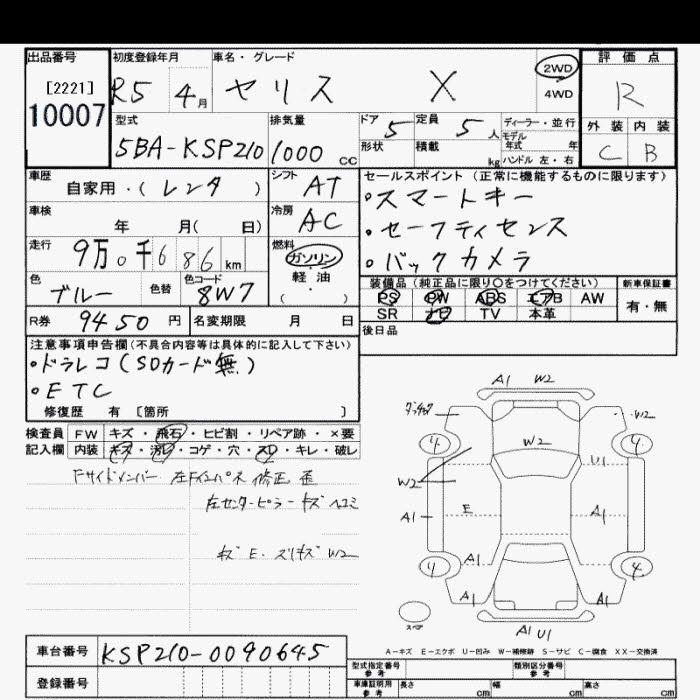 出品番号 初度登録年月 車名・グレード 評価点
[2221] R5 4月 ヤリス X 2WD R
10007 4WD
型式 排気量 ドア 定員 ディーラー・並行 外装 内装
5BA-KSP210 1000cc 5 5人 モデル年式 年 C B
形状 積載 kg ハンドル 左・右
車歴 シフト セールスポイント(正常に機能するものに限ります)
自家用・(レンタ) AT ・スマートキー
車検 冷房 ・セーフティセンス
年 月( 日) AC ・バックカメラ
走行 燃料
9万0千686km ガソリン・軽油
( )
色 色替 色コード 装備品(純正品に限り○をつけてください) 新車保証書
ブルー 8W7 PS PW ABS エアB AW 有・無
SR ナビ TV 本革
R券 9450円 名変期限 月 日 後日品
注意事項申告欄(不具合内容等は具体的に記入して下さい)
・ドラレコ(SDカード無)
・ETC
修復歴 有 〔箇所 〕
検査員 FW キズ・飛石・ヒビ割・リペア跡・×要
記入欄 内装 キズ・汚レ・コゲ・穴・スレ・キレ・破レ
Fサイドメンバー 左Fインパネ 修正 歪
左センターピラー キズ ヘコミ
キズ E・スリキズ W2
A1 W2
W2
4 4
W2 W2 U1
A1 E A1
A1
4 4
A1 A1
スペア A1 U1
A－キズ E－エクボ U－凹み W－補修跡 S－サビ C－腐食 XX－交換済
車台番号 KSP210-0090645
登録番号
型式指定番号 参考 類別区分番号 参考
車庫証明用 参考 長さ cm 幅 cm 高さ cm